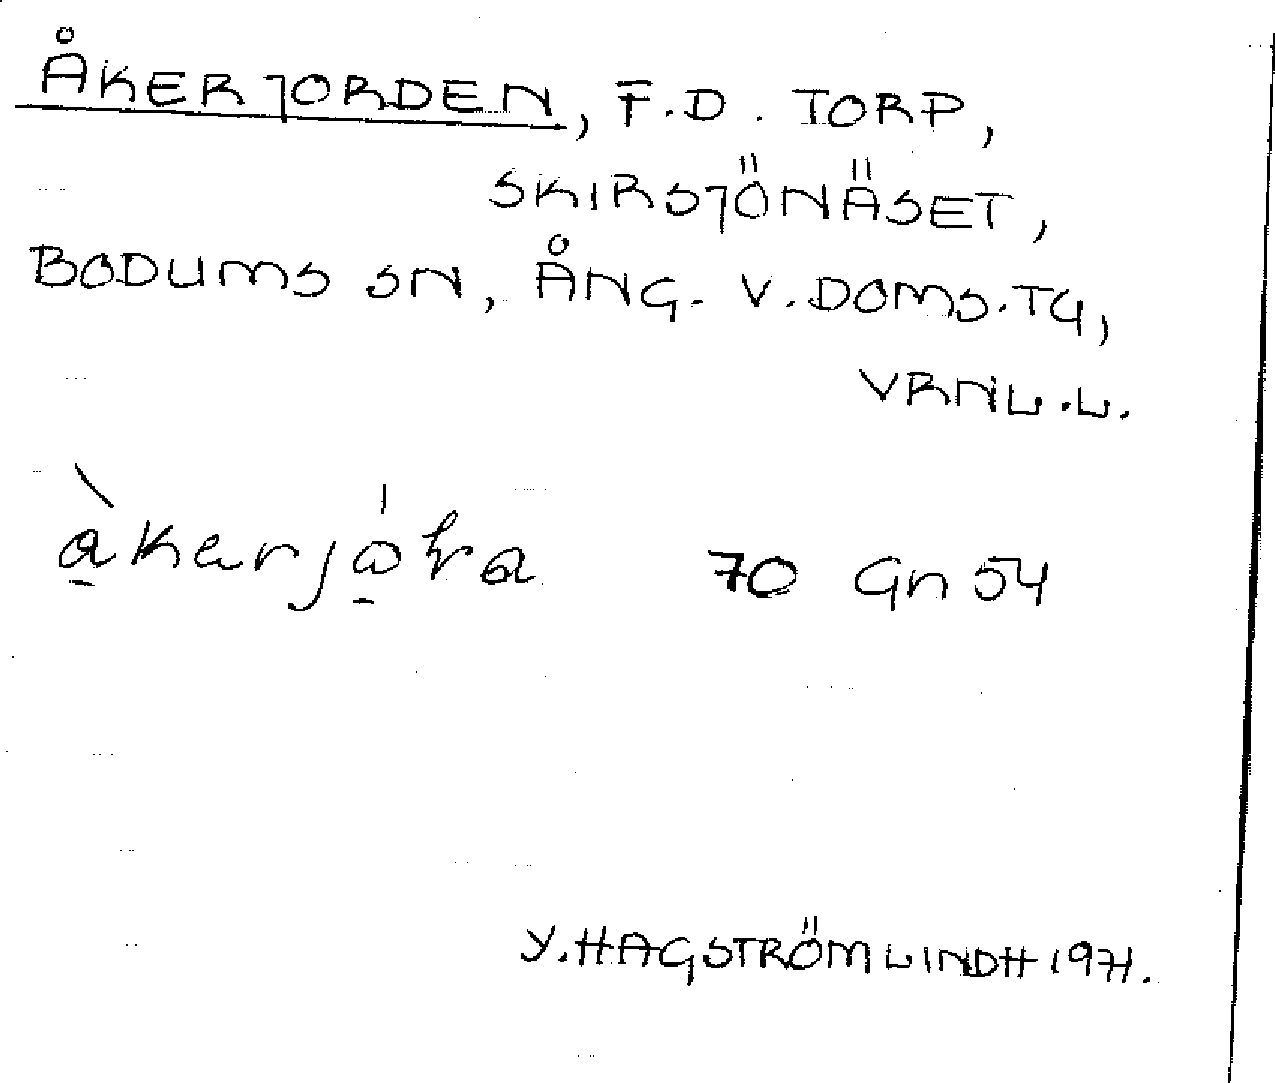 ÅKERJORDEN, F.D. TORP,
SKIRSJÖNÄSET,
BODUMS SN, ÅNG. V. DOMS. TG,
VRNL.L.
70 Gn 54
Y. HAGSTRÖM LINDH 1971.